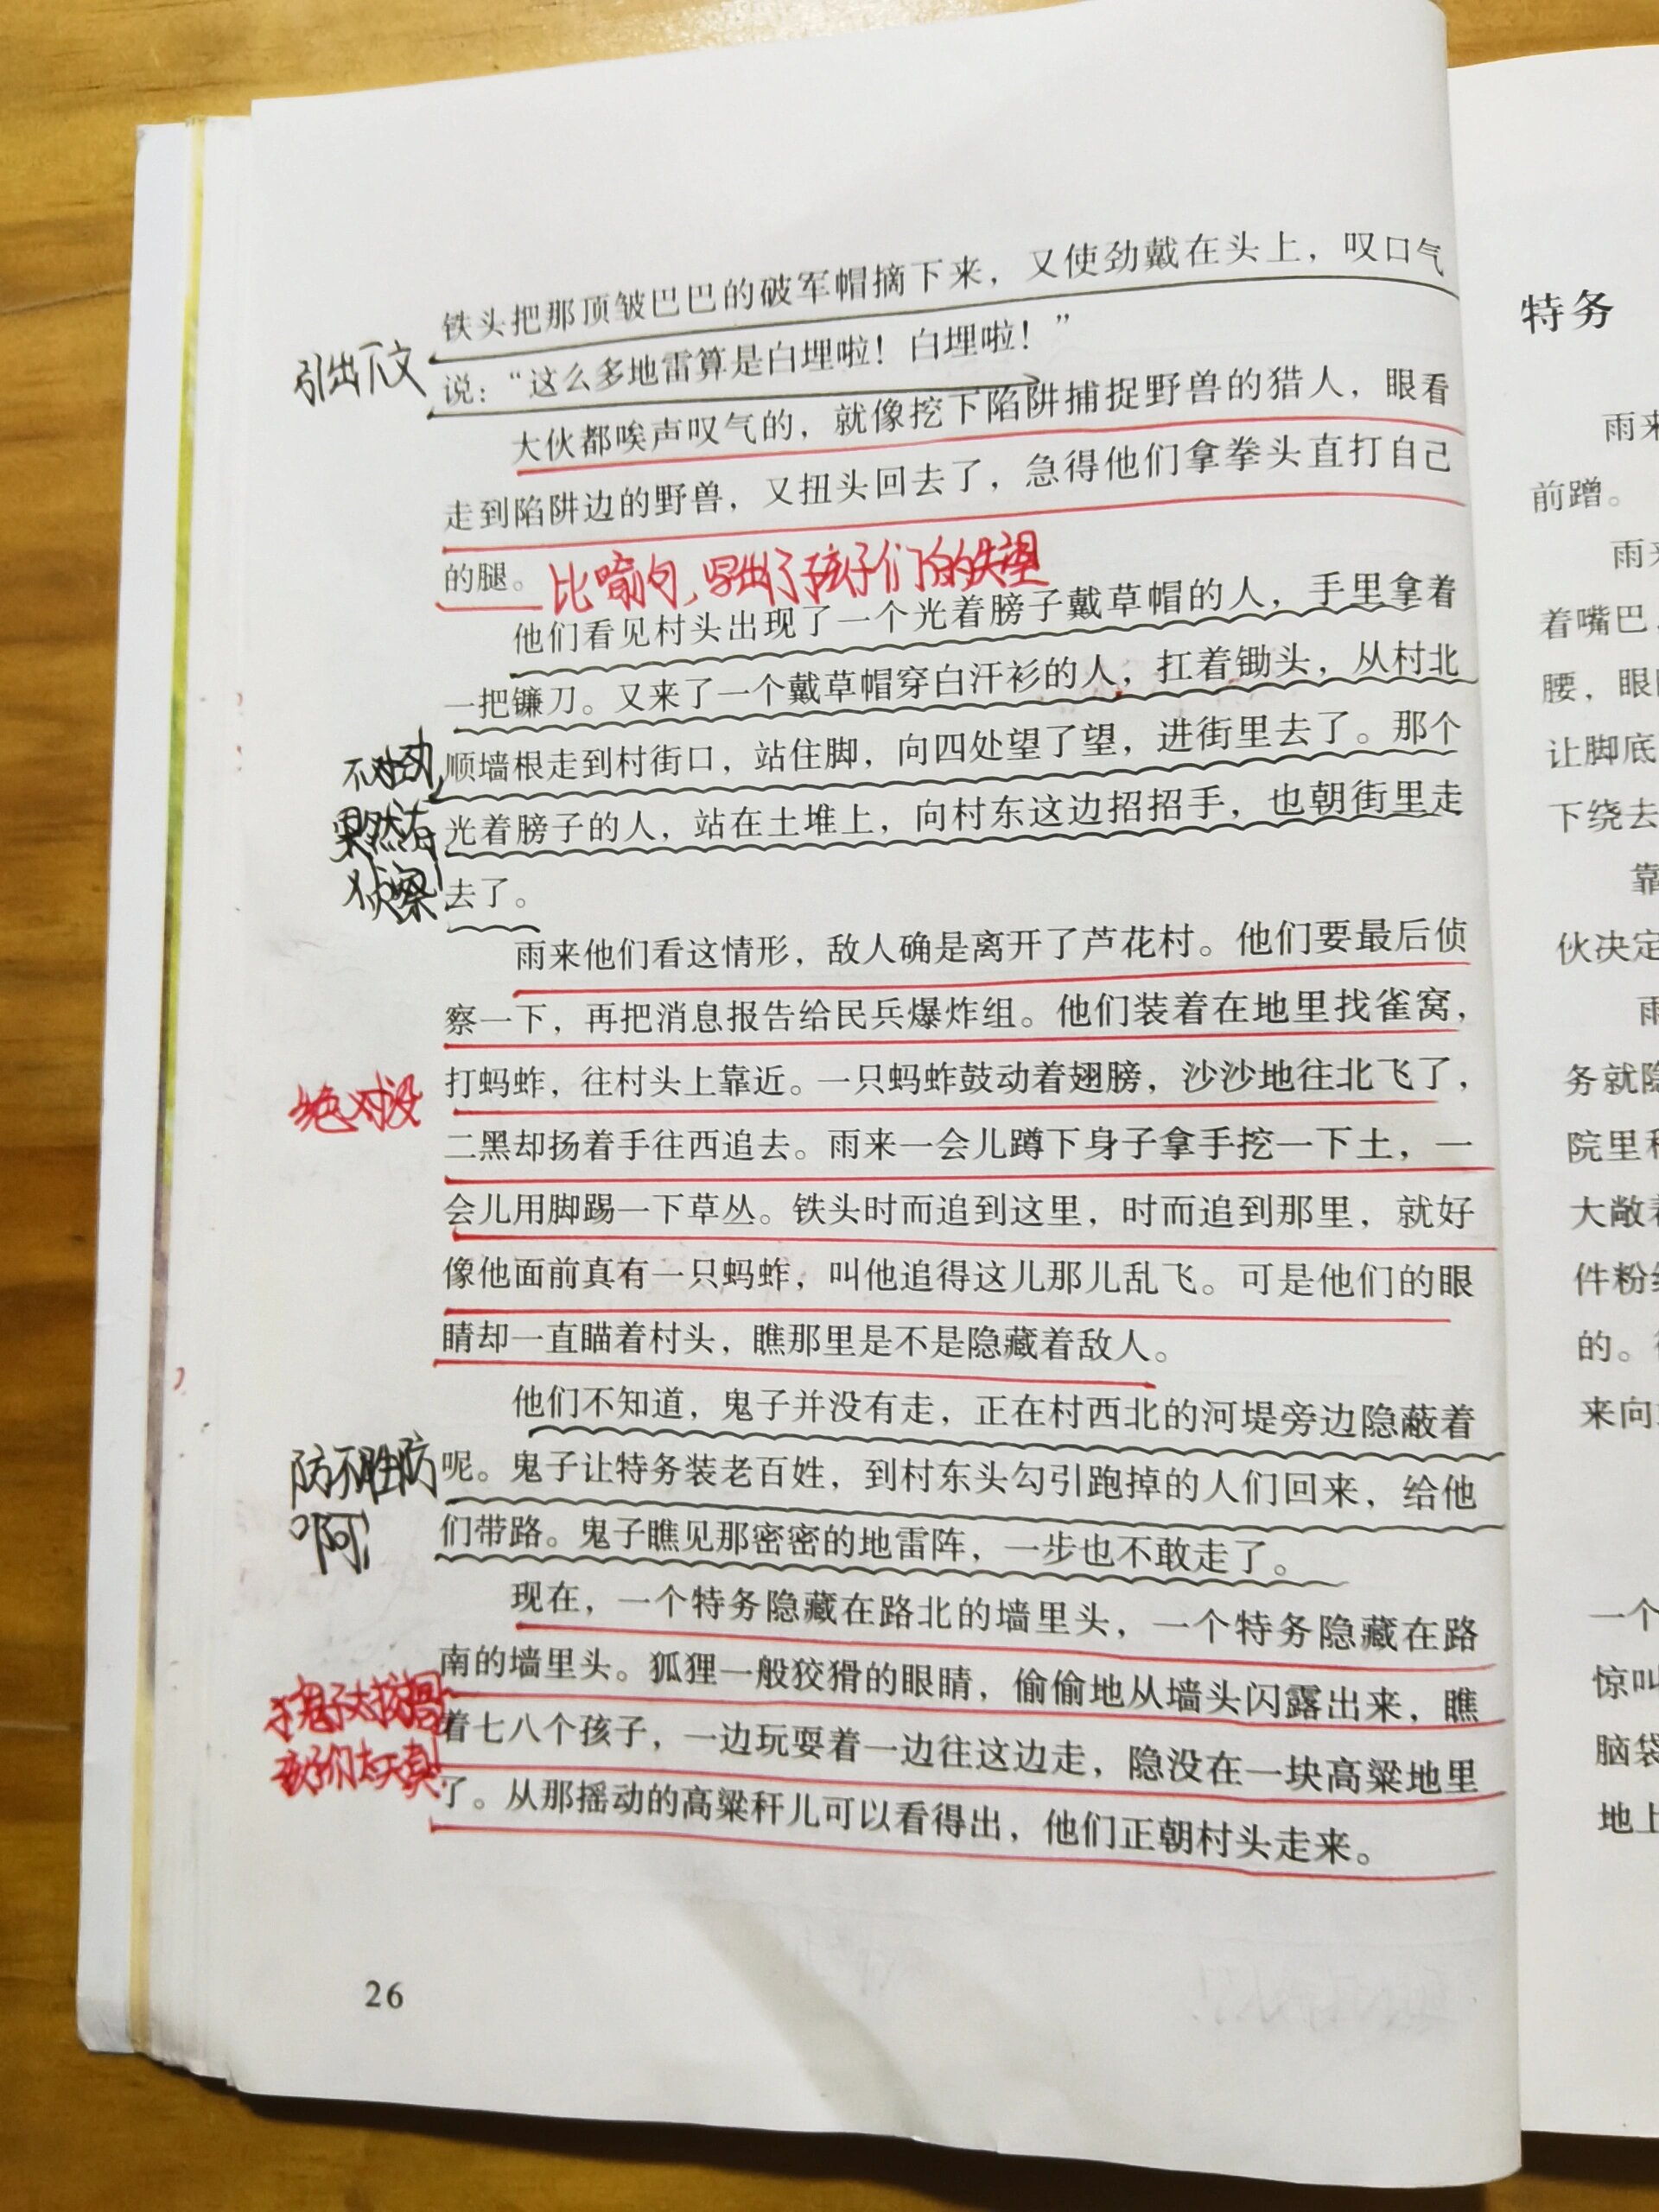 铁头把那顶皱巴巴的破军帽摘下来，又使劲戴在头上，叹口气
引出下文
说：“这么多地雷算是白埋啦！白埋啦！”
大伙都唉声叹气的，就像挖下陷阱捕捉野兽的猎人，眼看
走到陷阱边的野兽，又扭头回去了，急得他们拿拳头直打自己
的腿。
比喻句，写出了孩子们的失望
他们看见村头出现了一个光着膀子戴草帽的人，手里拿着
一把镰刀。又来了一个戴草帽穿白汗衫的人，扛着锄头，从村北
不对劲，
顺墙根走到村街口，站住脚，向四处望了望，进街里去了。那个
果然有
光着膀子的人，站在土堆上，向村东这边招招手，也朝街里走
侦察！
去了。
雨来他们看这情形，敌人确是离开了芦花村。他们要最后侦
察一下，再把消息报告给民兵爆炸组。他们装着在地里找雀窝，
绝对没
打蚂蚱，往村头上靠近。一只蚂蚱鼓动着翅膀，沙沙地往北飞了，
二黑却扬着手往西追去。雨来一会儿蹲下身子拿手挖一下土，一
会儿用脚踢一下草丛。铁头时而追到这里，时而追到那里，就好
像他面前真有一只蚂蚱，叫他追得这儿那儿乱飞。可是他们的眼
睛却一直瞄着村头，瞧那里是不是隐藏着敌人。
他们不知道，鬼子并没有走，正在村西北的河堤旁边隐蔽着
防不胜防
呢。鬼子让特务装老百姓，到村东头勾引跑掉的人们回来，给他
啊！
们带路。鬼子瞧见那密密的地雷阵，一步也不敢走了。
现在，一个特务隐藏在路北的墙里头，一个特务隐藏在路
南的墙里头。狐狸一般狡猾的眼睛，偷偷地从墙头闪露出来，瞧
鬼子太狡猾
着七八个孩子，一边玩耍着一边往这边走，隐没在一块高粱地里
孩子们太天真
了。从那摇动的高粱秆儿可以看得出，他们正朝村头走来。
26
特务
雨来
前蹭。
雨来
着嘴巴，
腰，眼
让脚底
下绕去
靠
伙决定
雨
务就隐
院里
大敞着
件粉
的。
来向
一个
惊叫
脑袋
地上